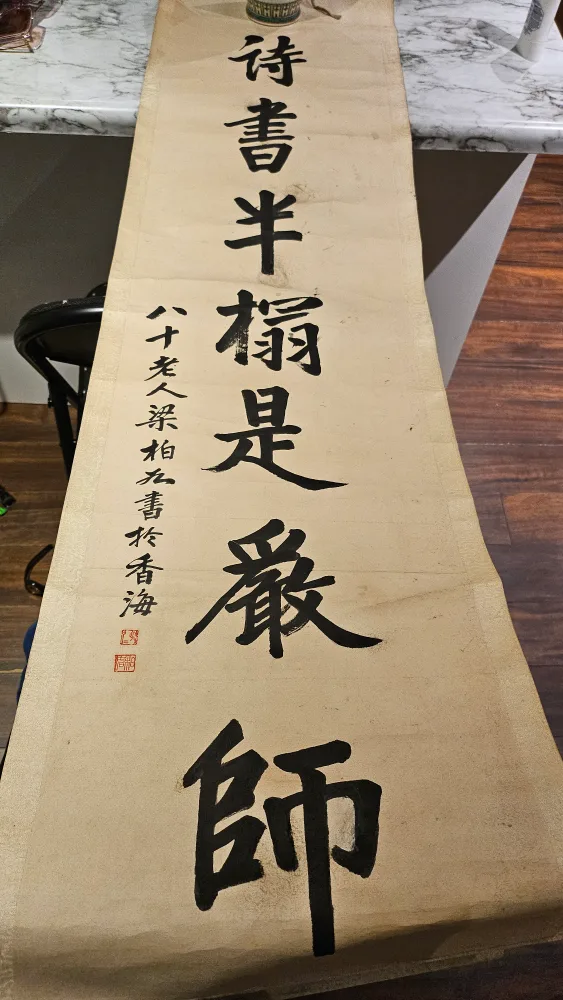 詩書半榻是嚴師
八十老人梁柏書於香海